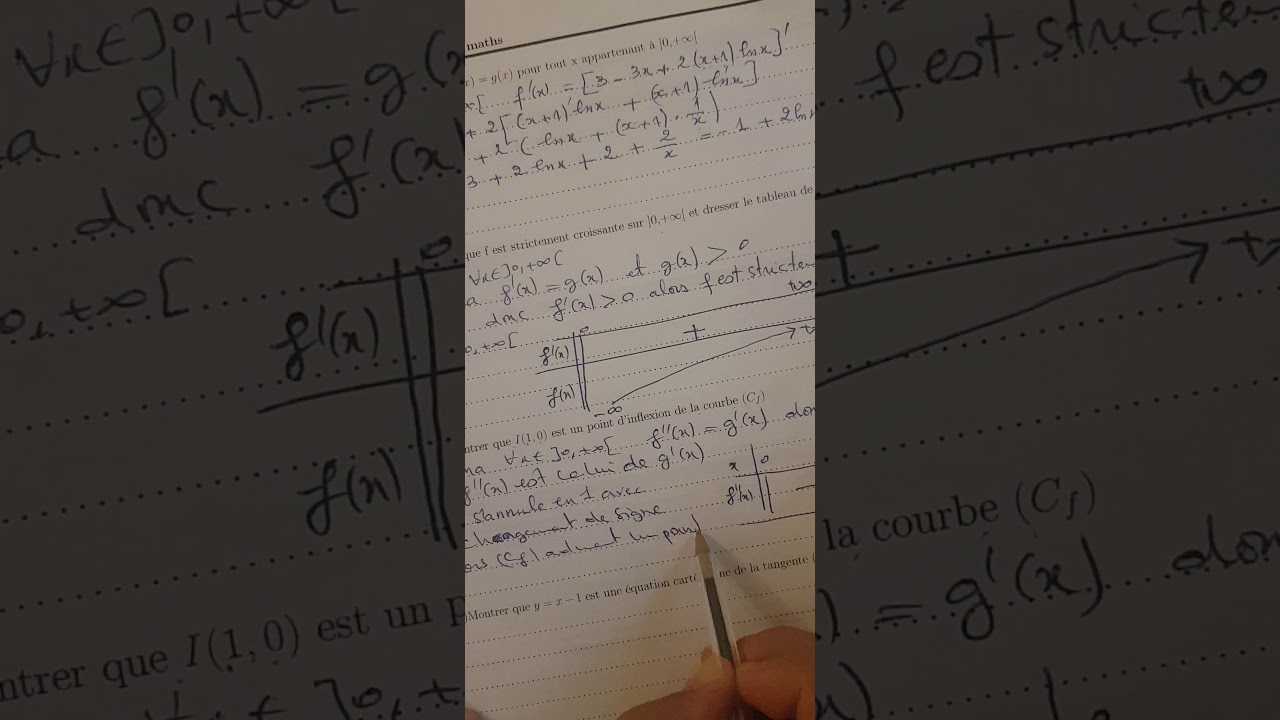 maths
) = g(x) pour tout x appartenant à ]0, +∞[
f'(x) = [3 - 3x + 2(x+1) ln x]'
+ 2[(x+1)' ln x + (x+1) ln'x]
+ 2 ( ln x + (x+1) · 1/x )
3 + 2 ln x + 2 + 2/x = -1 + 2 ln x
que f est strictement croissante sur ]0, +∞[ et dresser le tableau de
∀x∈]0,+∞[
a f'(x) = g(x) et g(x) > 0
donc f'(x) > 0 alors f est stricte
0, +∞[
0 +∞
f'(x) +
f(x) -∞ +
ntrer que I(1, 0) est un point d'inflexion de la courbe (C_f)
na ∀x∈]0,+∞[ f''(x) = g'(x) don
f''(x) est celui de g'(x)
s'annule en 1 avec
changement de signe
ors (Cf) admet un point
x 0
f''(x) -
)Montrer que y = x − 1 est une équation carté ne de la tangente (